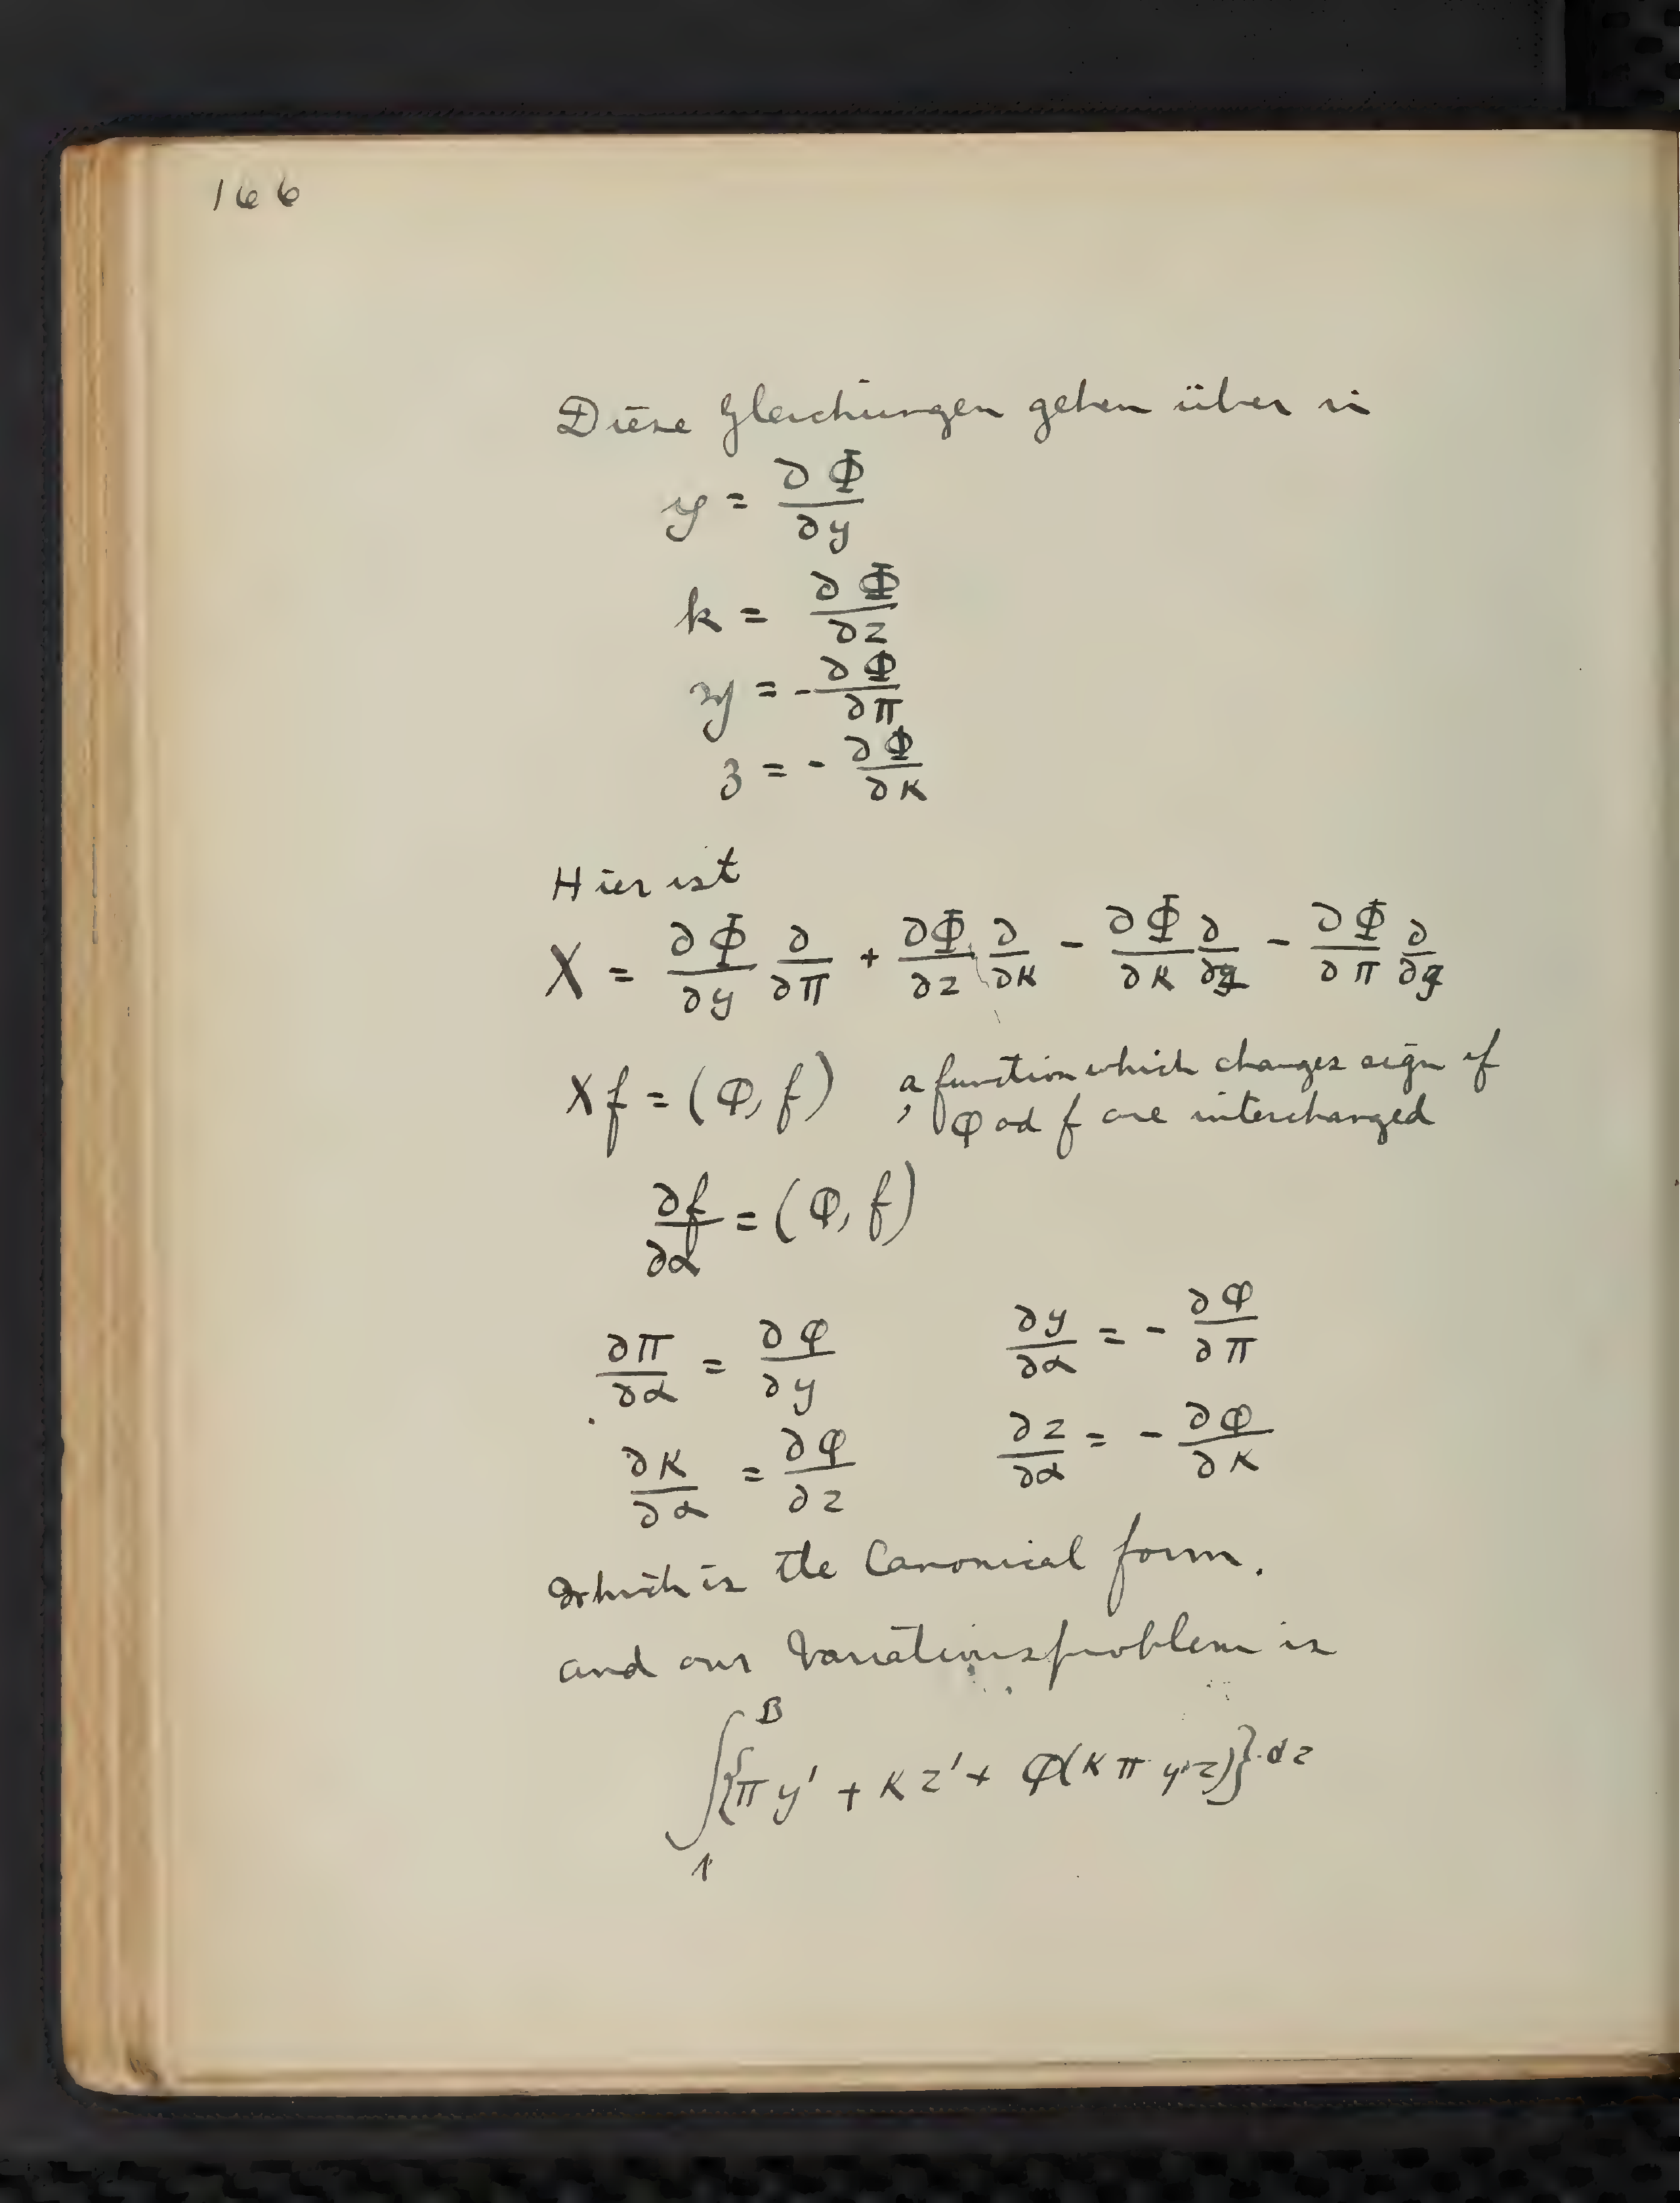 166
Diese Gleichungen gehen über in
= ∂Φ/∂y
k = ∂Φ/∂z
y = -∂Φ/∂π
z = - ∂Φ/∂κ
Hier ist
X = ∂Φ/∂y ∂/∂π + ∂Φ/∂z ∂/∂κ - ∂Φ/∂κ ∂/∂z - ∂Φ/∂π ∂/∂y
Xf = (φ, f) , a function which changes sign if
φ ad f are interchanged
∂f/∂α = (φ, f)
∂π/∂α = ∂φ/∂y ∂y/∂α = - ∂φ/∂π
∂κ/∂α = ∂φ/∂z ∂z/∂α = - ∂φ/∂κ
which is the Canonical form.
and our Variationsproblem is
∫_A^B {π y' + κ z' + φ(κ π y z)} dz